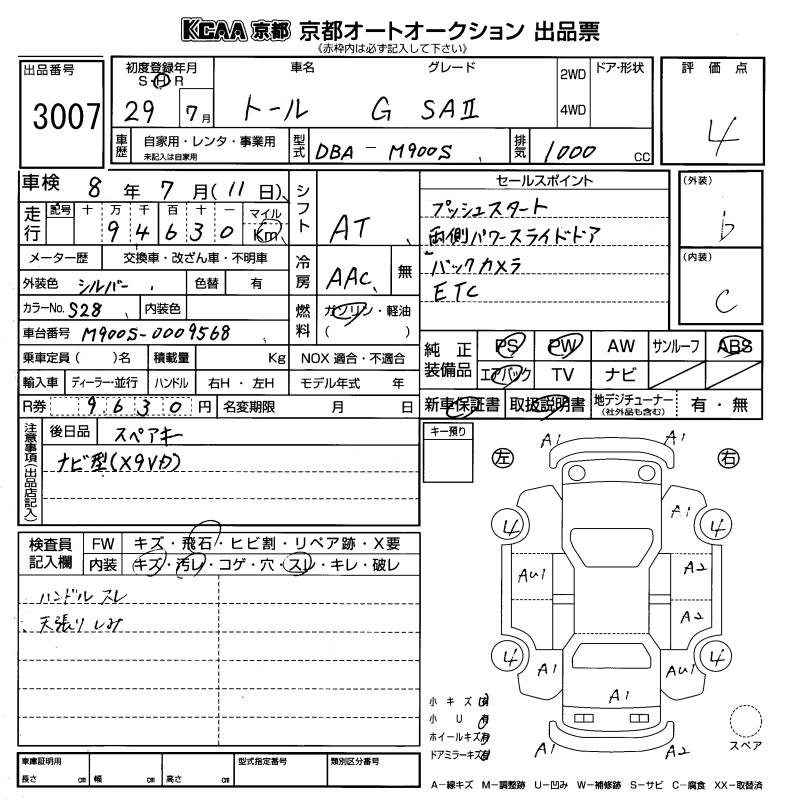 KCAA 京都 京都オートオークション 出品票
《赤枠内は必ず記入して下さい》
出品番号 3007
初度登録年月 S・H 29 7月
車名 トール
グレード G SAⅡ
2WD 4WD
ドア・形状
評価点 4
車歴 自家用・レンタ・事業用 未記入は自家用
型式 DBA-M900S
排気 1000 CC
車検 8年 7月(11日)
走行 記号 十 万 千 百 十 一 マイル Km
9 4 6 3 0
シフト AT
メーター歴 交換車・改ざん車・不明車
外装色 シルバー 色替 有
冷房 AAC 無
カラーNo. S28 内装色
燃料 ガソリン・軽油 ( )
車台番号 M900S-0009568
乗車定員( )名 積載量 Kg NOX 適合・不適合
輸入車 ディーラー・並行 ハンドル 右H・左H モデル年式 年
R券 9 6 3 0 円 名変期限 月 日
セールスポイント
プッシュスタート
両側パワースライドドア
バックカメラ
ETC
(外装) b
(内装) C
純正装備品 PS PW AW サンルーフ ABS
エアバック TV ナビ
新車保証書 取扱説明書 地デジチューナー (社外品も含む) 有・無
注意事項(出品店記入)
後日品 スペアキー
ナビ型(X9Vカ)
キー預り
検査員記入欄
FW キズ・飛石・ヒビ割・リペア跡・X要
内装 キズ・汚レ・コゲ・穴・スレ・キレ・破レ
ハンドル スレ
天張り しみ
左 右
A1 A1
4 A1 4
AU1 A2
A2
4 A1 AU1 4
A1
A1 A2
小キズ 有
小U 有
ホイールキズ 有
ドアミラーキズ 有
スペア
車庫証明用 長さ cm 幅 cm 高さ cm
型式指定番号 類別区分番号
A-線キズ M-調整跡 U-凹み W-補修跡 S-サビ C-腐食 XX-取替済